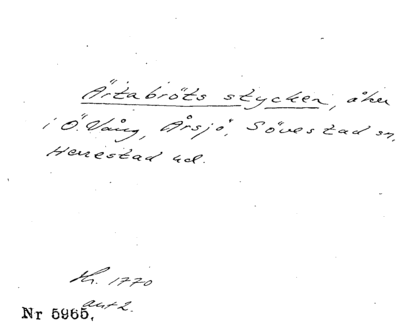 Ärtabröts stycken, åker
i Ö. Vång, Årsjö, Sövestad sn.
Herrestad hd.
Hr. 1770
akt 2.
Nr 5965.